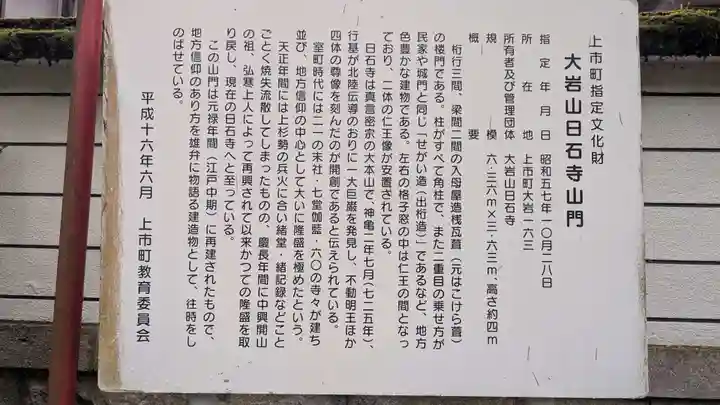 上市町指定文化財
大岩山日石寺山門
指定年月日　昭和五七年一〇月二八日
所在地　上市町大岩一六三
所有者及び管理団体　大岩山日石寺
規模　六・三六m×三・六三m、高さ約四m
概要
桁行三間、梁間二間の入母屋造桟瓦葺（元はこけら葺）
の楼門である。柱がすべて角柱で、また二重目の乗せ方が
民家や城門と同じ「せがい造（出桁造）」であるなど、地方
色豊かな建物である。左右の格子窓の中は仁王の間となっ
ており、二体の仁王像が安置されている。
日石寺は真言密宗の大本山で、神亀二年七月（七二五年）、
行基が北陸伝導のおりに一大巨巌を発見し、不動明王ほか
四体の尊像を刻んだのが開創であると伝えられている。
室町時代には二一の末社・七堂伽藍・六〇の寺々が建ち
並び、地方信仰の中心として大いに隆盛を極めたという。
天正年間には上杉勢の兵火に合い緒堂・緒記録などこと
ごとく焼失流散してしまったものの、慶長年間に中興開山
の祖、弘寒上人によって再興されて以来かつての隆盛を取
り戻し、現在の日石寺へと至っている。
この山門は元禄年間（江戸中期）に再建されたもので、
地方信仰のあり方を雄弁に物語る建造物として、往時をし
のばせている。
平成十六年六月　上市町教育委員会